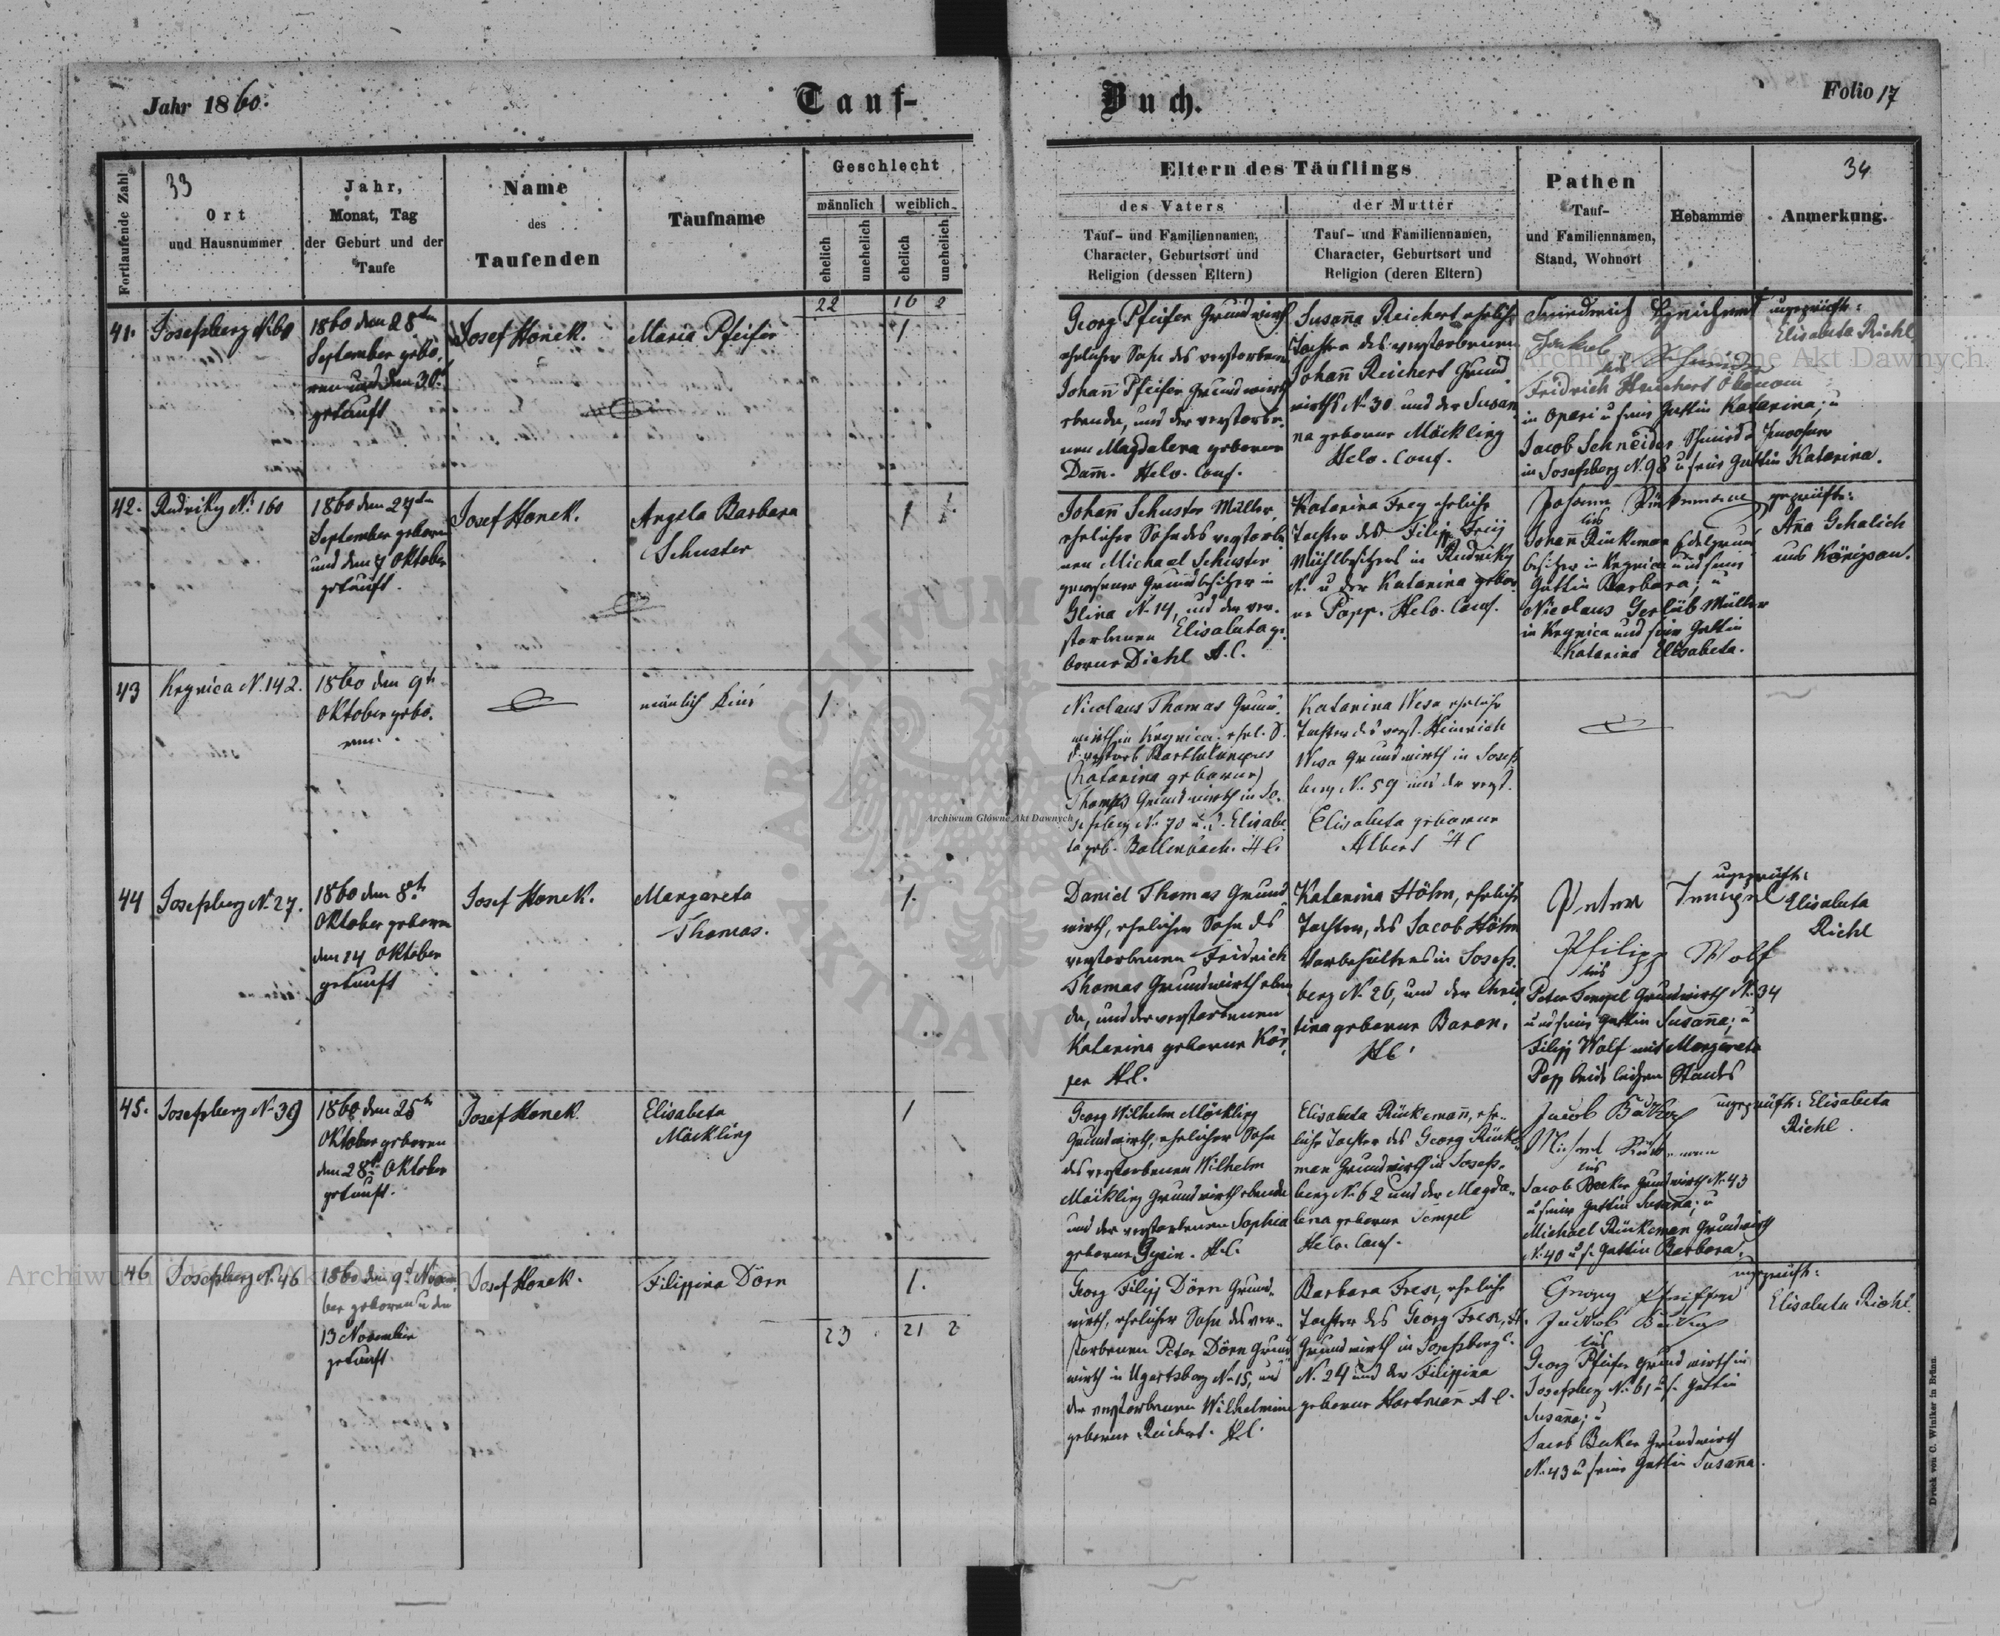 Jahr 1860.
Tauf-
Buch.
Folio 17
Fortlaufende Zahl
33
Ort
und Hausnummer
Jahr,
Monat, Tag
der Geburt und der
Taufe
Name
des
Taufenden
Taufname
Geschlecht
männlich
weiblich
ehelich
unehelich
ehelich
unehelich
Eltern des Täuflings
des Vaters
Tauf- und Familiennamen,
Character, Geburtsort und
Religion (dessen Eltern)
der Mutter
Tauf- und Familiennamen,
Character, Geburtsort und
Religion (deren Eltern)
Pathen
Tauf-
und Familiennamen,
Stand, Wohnort
Hebamme
34
Anmerkung.
22
16
2
41.
Josefsberg N. 60
1860 den 28ten
September gebo,
ren und den 30t
getauft
Josef Honek.
Maria Pfeifer
1
Georg Pfeifer Grundwirth
ehelicher Sohn des verstorbenen
Johann Pfeifer Grundwirth
ebenda, und der verstorbe-
nen Magdalena geborene
Damm. Helv. Conf.
Susanna Reichert eheliche
Tochter des verstorbenen
Johann Reichert Grund
wirths N. 30 und der Susan
na geborne Möckling
Helv. Conf.
Fridrich Reichert Ökonom
in Opari u seine Gattin Katarina; u
Jacob Schneider Schmied
in Josefsberg N. 98 u seine Gattin Katarina.
ungeprüft:
Elisabeta Riehl
42.
Rudniky N. 160
1860 den 27ten
September geboren
und den 7 Oktober
getauft.
Josef Honek.
Angela Barbara
Schuster
1
Johann Schuster Müller,
ehelicher Sohn des verstorbe
nen Michael Schuster
gewesener Grundbesitzer in
Glina N. 14, und der ver-
storbenen Elisabeta ge
borne Diehl A. C.
Katarina Frey eheliche
Tochter des Filipp Frey
Mühlbesitzers in Rudniky
N. u der Katarina gebor
ne Popp. Helv. Conf.
Johann Rückeman Edelgrund
besitzer in Krynica und seine
Gattin Barbara; u
Nicolaus Gerlüb Müller
in Krynica und seine Gattin
Katarina Elisabeta.
geprüft:
Anna Gehalich
aus Königsau.
43
Krynica N. 142.
1860 den 9ten
Oktober gebo.
ren.
männlich Kind
1
Nicolaus Thomas Grund-
wirth in Krynica. ehel. S.
d. verstorb Bartholomeus
(Katarina geborne)
Thomas Grundwirth in Jo-
sefsberg N. 70 u. d. Elisabe
ta geb. Bollenbach. H C.
Katarina Wesa eheliche
Tochter des verst. Heinrich
Wesa Grundwirth in Josefs
berg N. 59 und der verst.
Elisabeta geborne
Albert H C
44
Josefsberg N. 27.
1860 den 8t
Oktober geboren
den 14 Oktober
getauft
Josef Honek.
Margareta
Thomas.
1.
Daniel Thomas Grund
wirth, ehelicher Sohn des
verstorbenen Fridrich
Thomas Grundwirth eben
da, und der verstorbenen
Katarina geborne Kör,
per H. C.
Katarina Höhn, eheliche
Tochter, des Jacob Höhn
Vorbehälters in Josefs.
berg N. 26, und der Chris
tina geborne Baron,
H C.
Peter Tempel
Philipp Wolf
Peter Tempel Grundwirth N. 34
und seine Gattin Susanna; u
Filipp Wolf mit Margareta
Popp beide ledigen Standes
ungeprüft:
Elisabeta
Riehl
45.
Josefsberg N. 39
1860 den 25ten
Oktober geboren
den 28t Oktober
getauft.
Josef Honek
Elisabeta
Möckling
1
Georg Wilhelm Möckling
Grundwirth, ehelicher Sohn
des verstorbenen Wilhelm
Möckling Grundwirth ebenda
und der verstorbenen Sophia
geborne H. C.
Elisabeta Rückemann, ehe-
liche Tochter des Georg Rücke-
man Grundwirth in Josefs-
berg N. 62 und der Magda-
lena geborne Tempel
Helv. Conf.
Jacob Becker
Jacob Becker Grundwirth N. 43
u seine Gattin Susanna; u
Michael Rückeman Grundwirth
N. 40 u s. Gattin Barbara.
ungeprüft: Elisabeta
Riehl.
46
Josefsberg N. 46
1860 den 9t Novem
ber geboren u den
13 November
getauft.
Josef Honek.
Filippina Dörn
1.
23
21
2
Georg Filipp Dörn Grund-
wirth, ehelicher Sohn des ver-
storbenen Peter Dörn Grund
wirth in Ugartsberg N. 15, und
der verstorbenen Wilhelmine
geborne Reichert. H. C.
Barbara Frese, eheliche
Tochter des Georg Frese, A.
Grundwirth in Josefsberg C.
N. 24 und der Filippina
geborne Hartmann A C.
Georg Pfeiffer
Jackob Becker
Georg Pfeifer Grundwirth in
Josefsberg N. 61 u s. Gattin
Susanna; u
Jacob Becker Grundwirth
N. 43 u seine Gattin Susanna.
ungeprüft:
Elisabeta Riehl.
Druck von C. Winiker in Brünn.
Archiwum Główne Akt Dawnych